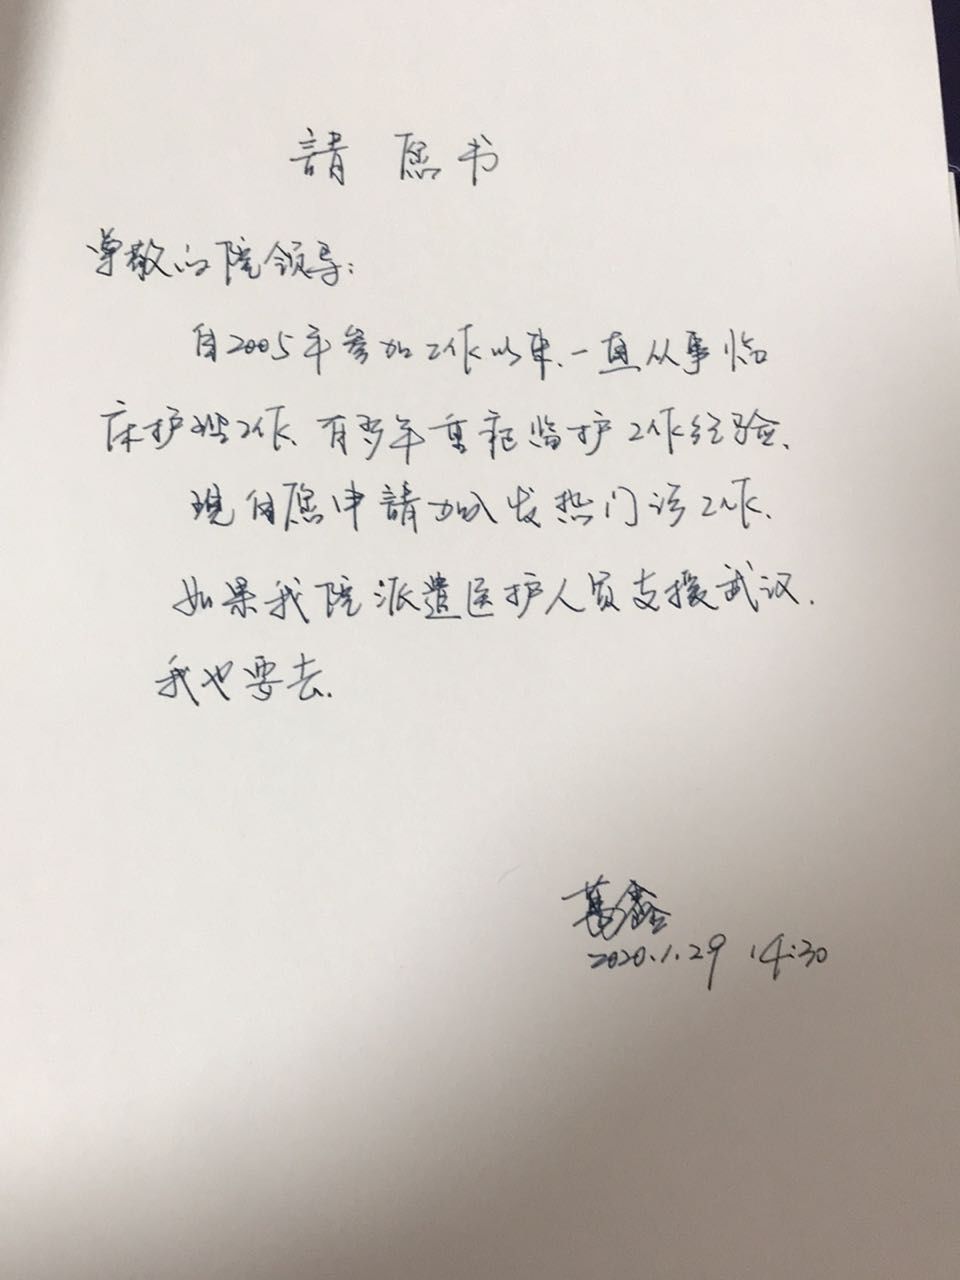 請愿书
尊敬的院领导：
自2005年参加工作以来、一直从事临
床护理工作、有多年重症监护工作经验、
现自愿申請加入发热门诊工作、
如果我院派遣医护人员支援武汉、
我也要去、
葛鑫
2020.1.29 14:30